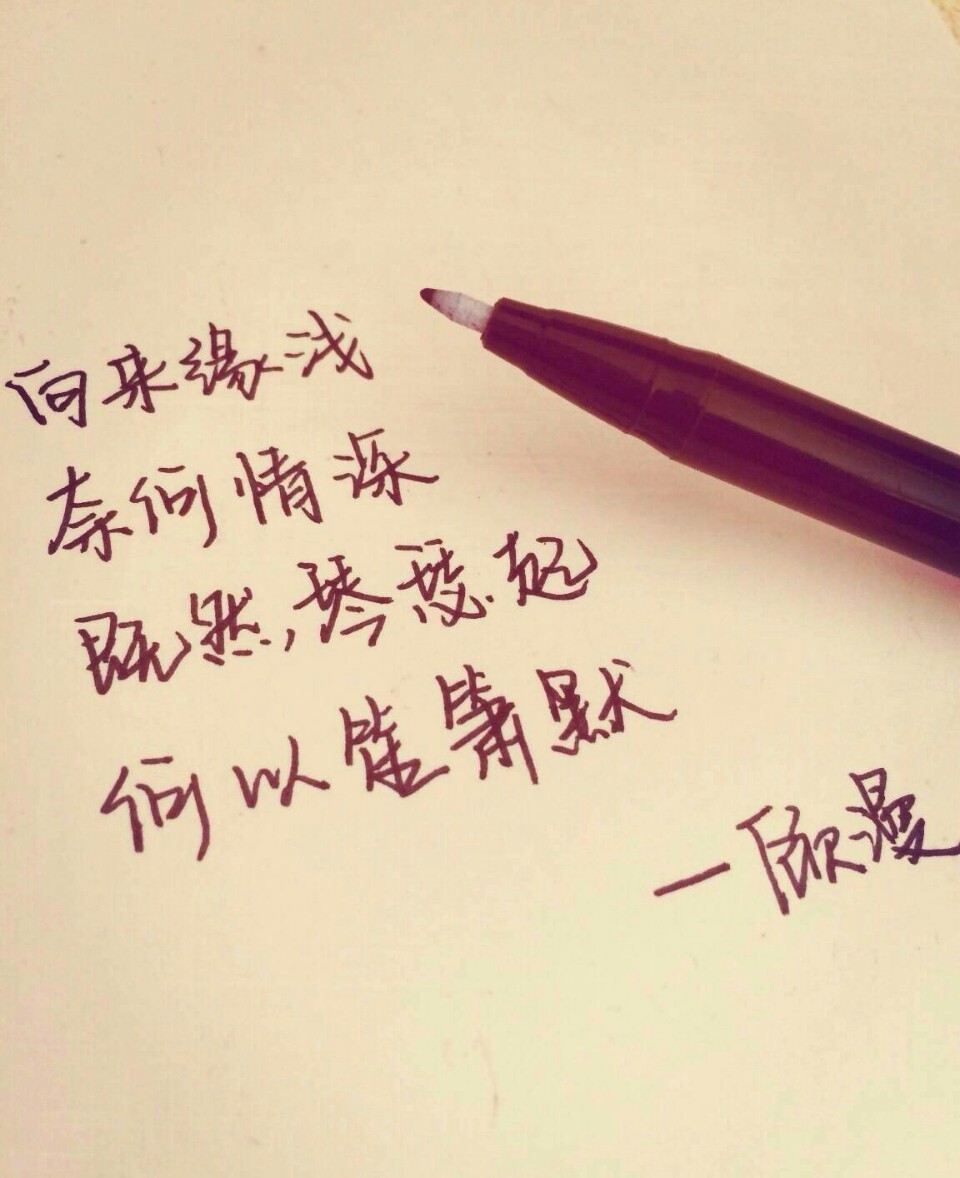 向来缘浅
奈何情深
既然,琴瑟起
何以笙箫默
一欣漫